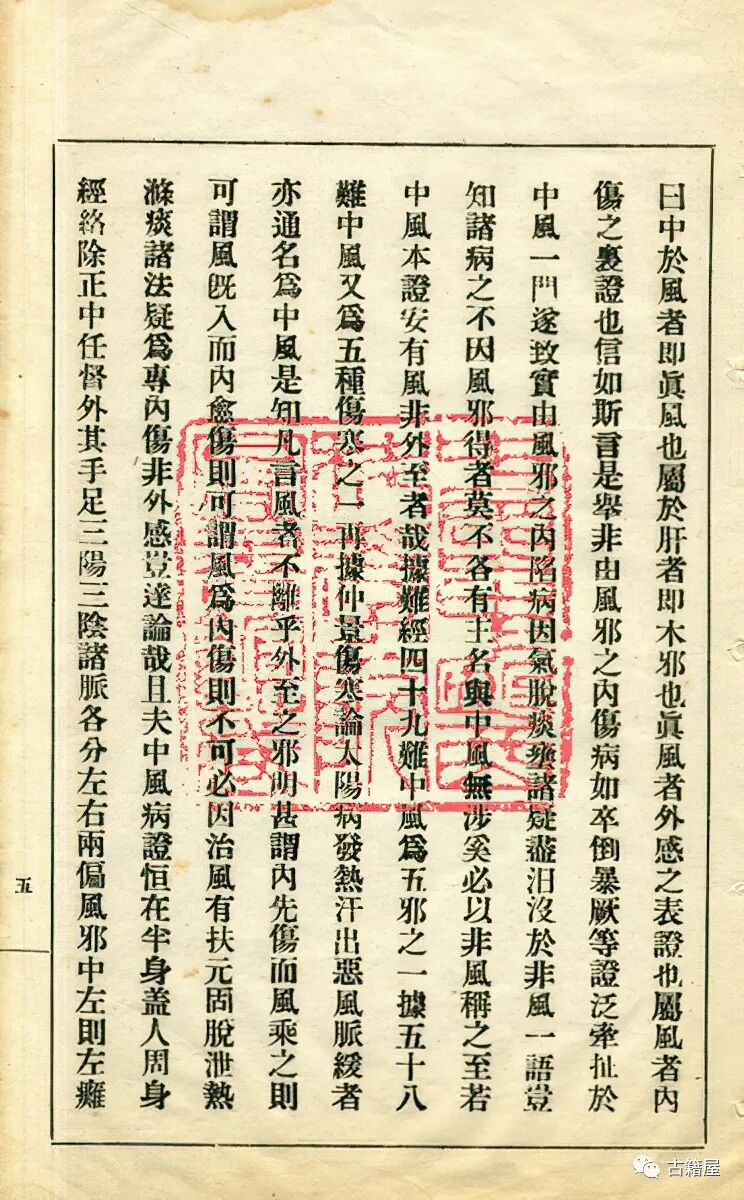 曰中於風者即眞風也屬於肝者即木邪也眞風者外感之表證也屬風者內
傷之裏證也信如斯言是舉非由風邪之內傷病如卒倒暴厥等證泛牽扯於
中風一門遂致實由風邪之內陷病因氣脫痰壅諸疑盡汨沒於非風一語豈
知諸病之不因風邪得者莫不各有主名與中風無涉奚必以非風稱之至若
中風本證安有風非外至者哉據難經四十九難中風爲五邪之一據五十八
難中風又爲五種傷寒之一再據仲景傷寒論太陽病發熱汗出惡風脈緩者
亦通名爲中風是知凡言風者不離乎外至之邪明甚謂內先傷而風乘之則
可謂風旣入而內愈傷則可謂風爲內傷則不可必因治風有扶元固脫泄熱
滌痰諸法疑爲專內傷非外感豈達論哉且夫中風病證恒在半身盖人周身
經絡除正中任督外其手足三陽三陰諸脈各分左右兩偏風邪中左則左癱
五
古籍屋